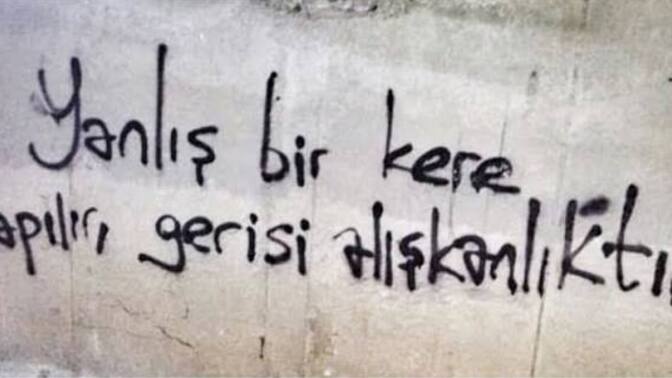 Yanlış bir kere
apılır, gerisi alışkanlıktı